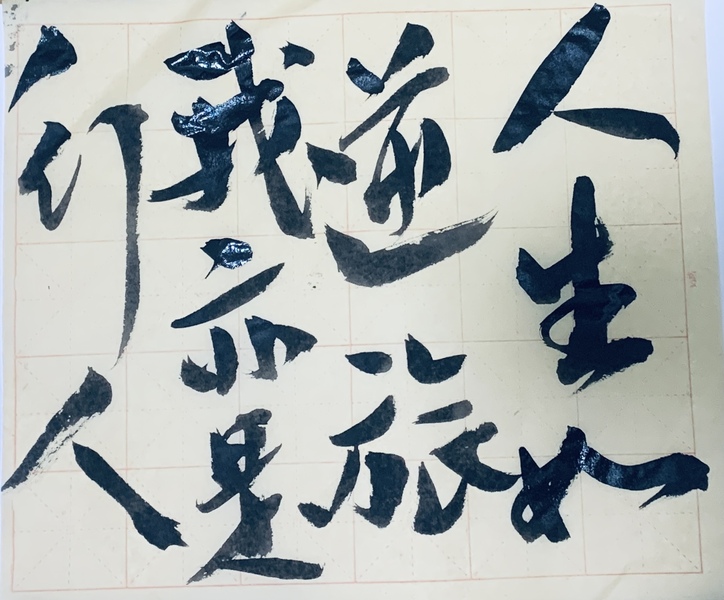 人生如
逆旅
我亦是
行人